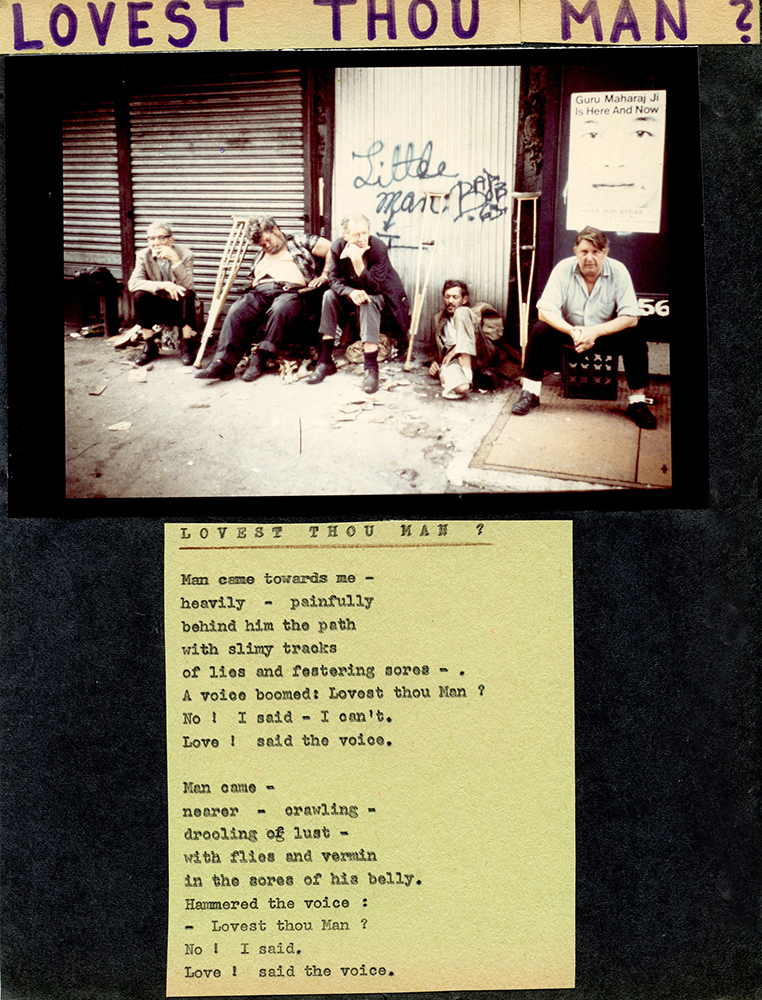 LOVEST THOU MAN ?
Guru Maharaj Ji
Is Here And Now
HEAR HIM SPEAK
Little
man:
56
LOVEST THOU MAN ?
Man came towards me -
heavily - painfully
behind him the path
with slimy tracks
of lies and festering sores - .
A voice boomed: Lovest thou Man ?
No ! I said - I can't.
Love ! said the voice.
Man came -
nearer - crawling -
drooling of lust -
with flies and vermin
in the sores of his belly.
Hammered the voice :
- Lovest thou Man ?
No ! I said.
Love ! said the voice.